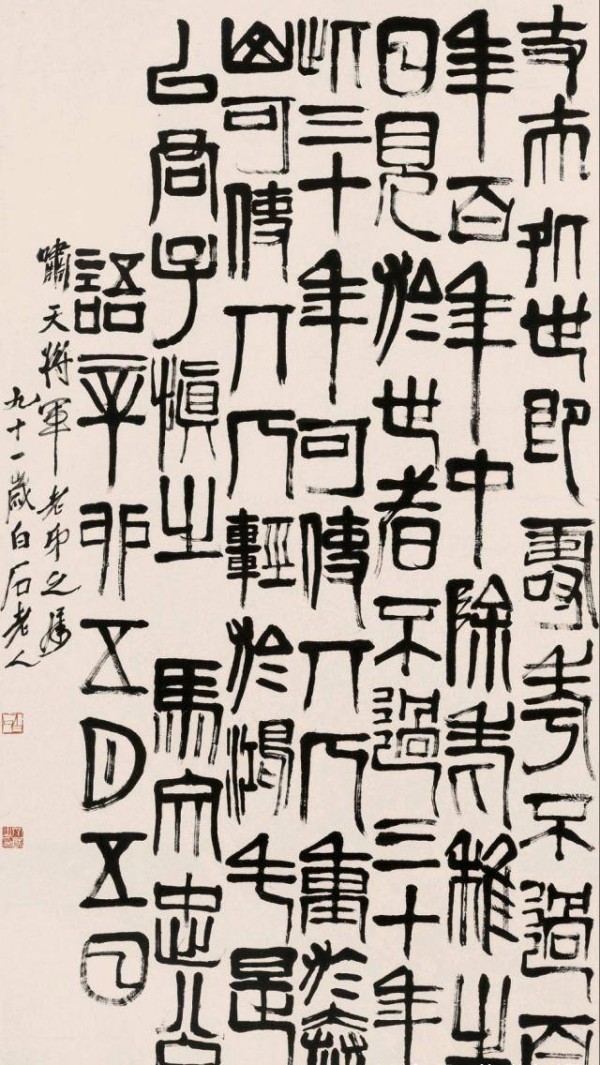 丈夫処世即壽考不過百
年百年中除老稚之
日見於世者不過三十年
此三十年可使丌人重於泰
山可使丌人輕於鴻毛是
以君子慎之 馬文忠公
語辛卯五月五日
嘯天將軍老弟之屬
九十一歲白石老人